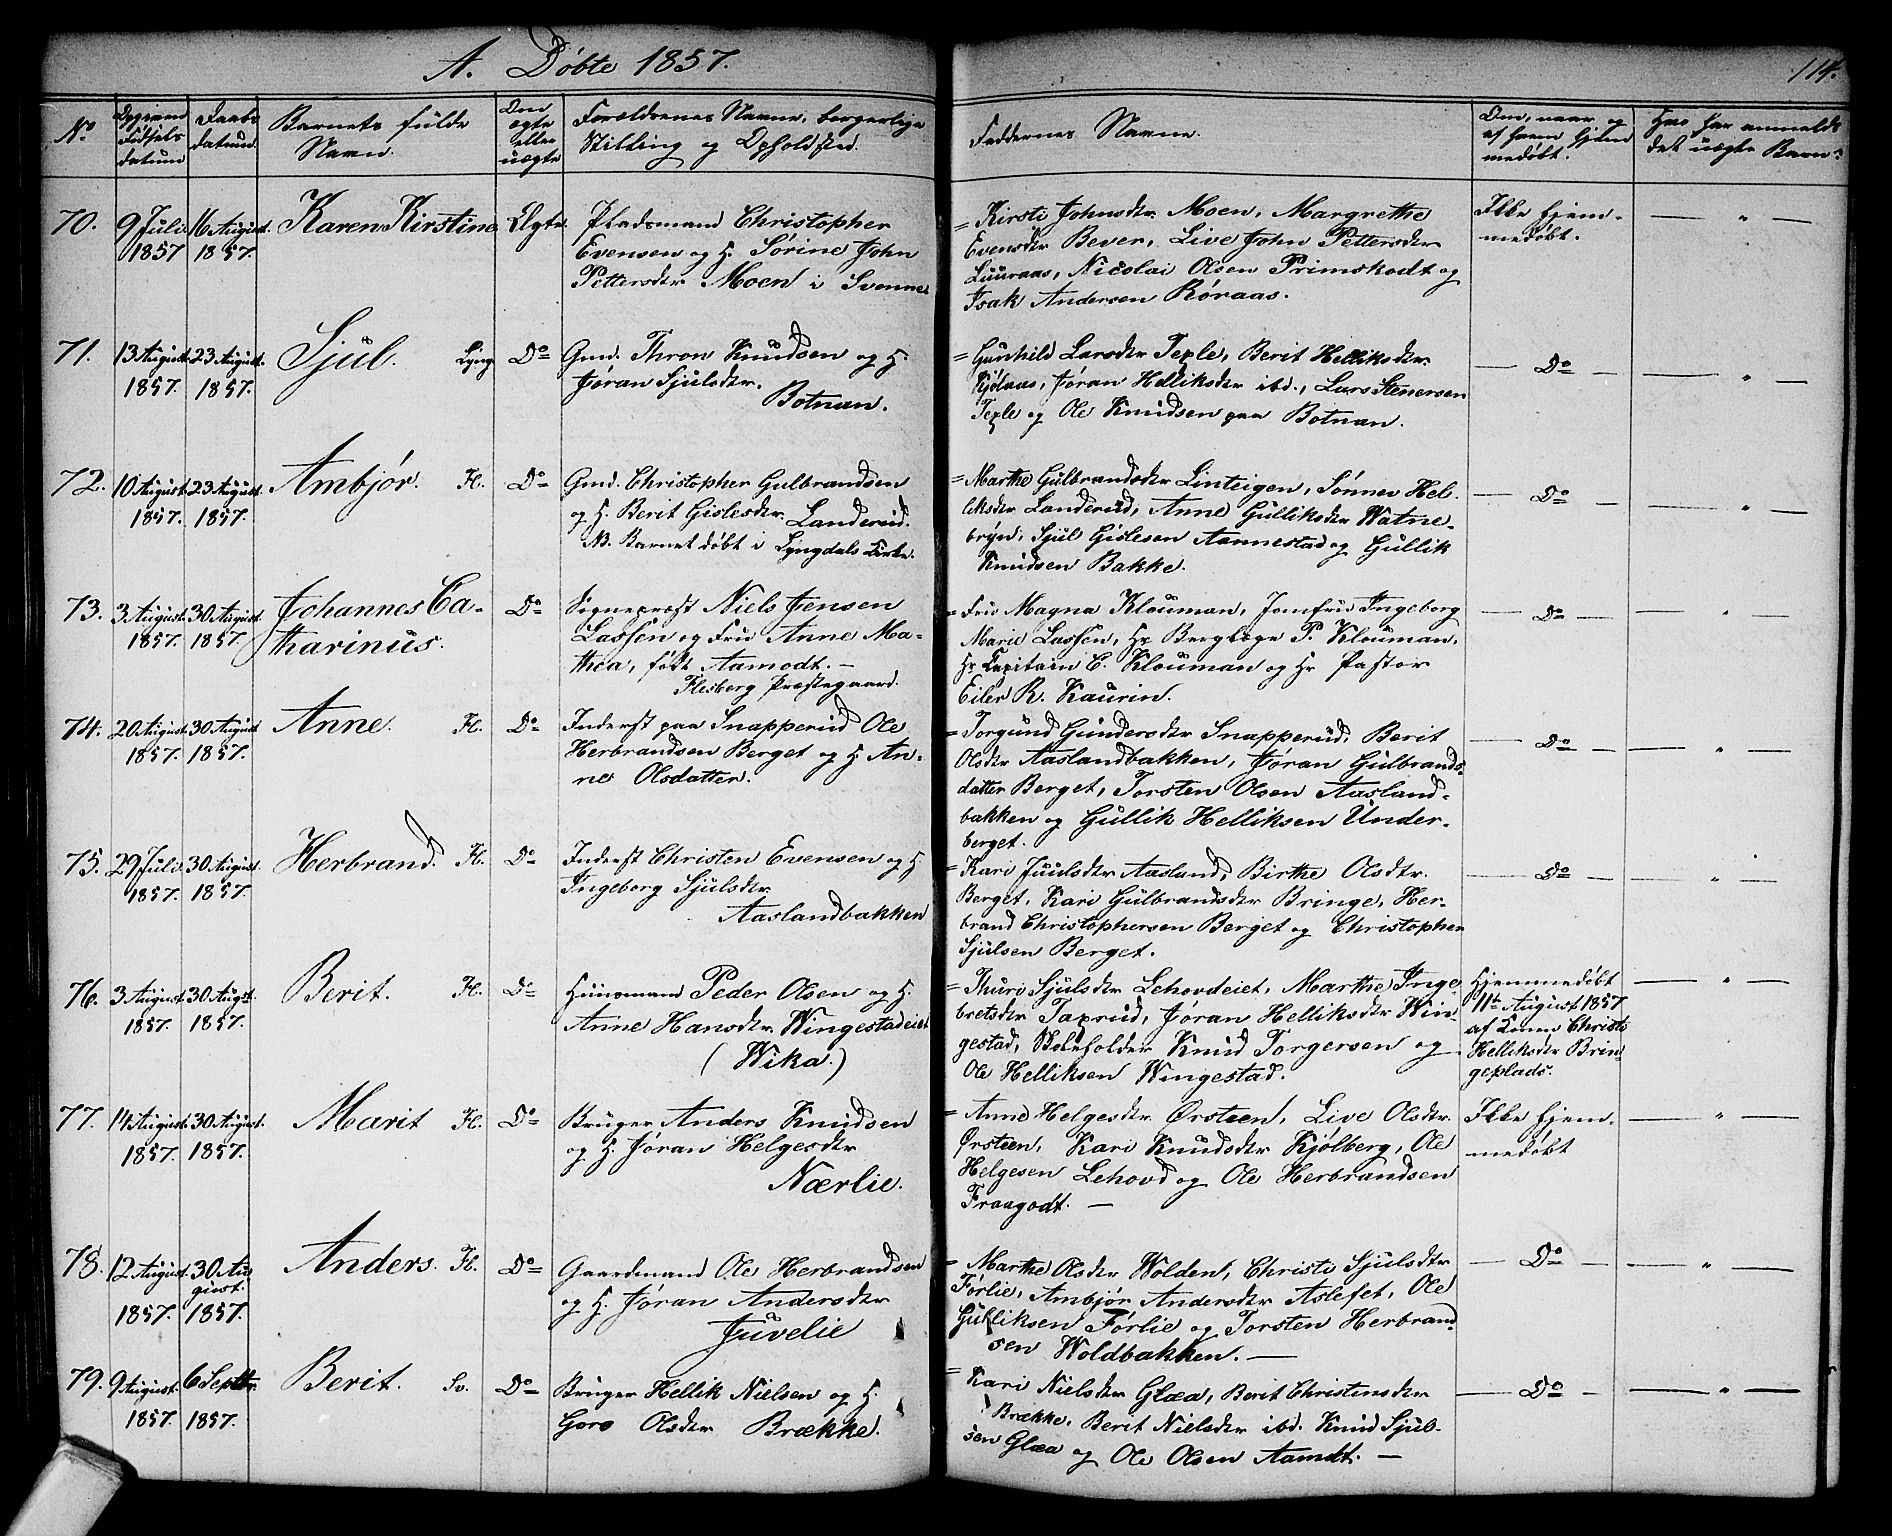 A. Døbte 1857.
114.
No
Dag som Fødsels datum
Daabs datum.
Barnets fulde Navn.
Om ægte eller uægte
Forældrenes Navne, borgerlige Stilling og Opholdsted.
Faddernes Navne.
Om, naar og af hvem hjem medøbt.
Hvo har anmeldt det uægte Barn?
70. 9 Juli 1857 16 August 1857. Karen Kirstine Ægte.
Pladsmand Christopher
Evensen og H. Sørine John
Pettersdtr Moen i Svenne
= Kirsti Johnsdtr Moen, Margrethe
Evensdtr Bever, Live John Pettersdtr
Luuraas, Nicolai Olsen Primskodt og
Isak Andersen Røraas.
Ikke hjem-
medøbt.
— " —
71. 13 August 1857. 23 August 1857. Sjul. Lyng. Do
Gmd. Thron Knudsen og H.
Jøran Sjulsdtr.
Botnan.
= Gunhild Larsdtr Texle, Berit Helliksdtr
Kjølaas, Jøran Helliksdtr ibd., Lars Stenersen
Texle og Ole Knudsen paa Botnan.
— Do —
— " —
72. 10 August 1857. 23 August 1857. Ambjør. Fl. Do
Gmd. Christopher Gulbrandsen
og H. Berit Gislesdtr Landerud.
NB. Barnet døbt i Lyngdals Kirke.
= Marthe Gulbrandsdtr Linteigen, Sønnev Hel-
liksdtr Landerud, Anne Gulliksdtr Watne-
bryn, Sjul Gislesen Aannestad og Gullik
Knudsen Bakke.
— Do —
— " —
73. 3 August 1857. 30 August 1857 Johannes Ca-
tharinus. Do
Sognepræst Niels Jensen
Lassen og Fru Anne Ma-
thea, født Aamodt. —
Flesberg Præstegaard.
= Fru Magna Klouman, Jomfru Ingeborg
Marie Lassen, Hr Bergløge P. Klouman,
Hr Capitain C. Klouman og Hr Pastor
Eiler R. Kaurin.
— Do —
— " —
74. 20 August 1857. 30 August 1857. Anne. Fl. Do
Inderst paa Snapperud Ole
Herbrandsen Berget og H. An-
ne Olsdatter.
= Torgund Gundersdtr Snapperud, Berit
Olsdtr Aaslandbakken, Jøran Gulbrands-
datter Berget, Torsten Olsen Aasland-
bakken og Gullik Helliksen Under-
berget.
— Do —
— " —
75. 29 Juli 1857. 30 August 1857. Herbrand. Fl. Do
Inderst Christen Evensen og H
Ingeborg Sjulsdtr
Aaslandbakken
= Kari Juulsdtr Aasland, Birthe Olsdtr.
Berget, Kari Gulbrandsdtr Bringe, Her-
brand Christophersen Berget og Christopher
Sjulsen Berget.
— Do —
— " —
76. 3 August 1857. 30 Augst. 1857. Berit. Fl. Do
Huusmand Peder Olsen og H.
Anne Hansdtr Wingestadeiet
(Wika.)
= Thuri Sjulsdtr Lehovdeiet, Marthe Inge
bretsdtr Taxrud, Jøran Helliksdtr Win-
gestad, Skoleholder Knud Torgersen og
Ole Helliksen Wingestad.
Hjemmedøbt
11te August 1857
af Konen Christi
Helliksdtr Brin-
geplads.
— " —
77. 14 August 1857. 30 August. 1857. Marit Fl. Do
Bruger Anders Knudsen
og H. Jøran Helgesdtr
Nærlie.
= Anne Helgesdtr Ørsteen, Live Olsdtr
Ørsteen, Kari Knudsdtr Kjølberg, Ole
Helgesen Lehovd og Ole Herbrandsen
Fraagodt. —
Ikke hjem-
medøbt
— " —
78. 12 August 1857. 30 Au
gust. 1857. Anders. Fl. Do
Gaardmand Ole Herbrandsen
og H. Jøran Andersdtr
Juvelie
= Marthe Olsdtr Wolden, Christi Sjulsdtr
Førlie, Ambjør Andersdtr Aslefet, Ole
Gulliksen Førlie og Torsten Herbrand-
sen Woldbakken. —
— Do —
— " —
79. 9 August. 1857. 6 Septbr. 1857. Berit. Sv. Do
Bruger Hellik Nielsen og H.
Goro Olsdtr Brække.
= Kari Nielsdtr Glæa, Berit Christensdtr
Brække, Berit Nielsdtr ibd. Knud Sjul-
sen Glæa og Ole Olsen Aamdt. —
— Do —
— " —